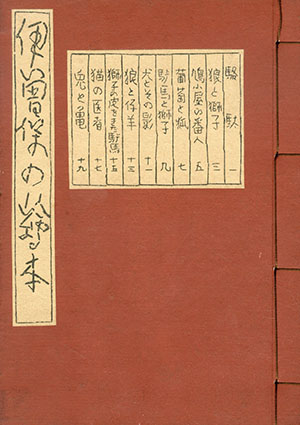 伊曾保の絵本
駱駝 一
狼と獅子 三
鳩小屋の番人 五
葡萄と狐 七
驢馬と獅子 九
犬とその影 十一
狼と仔羊 十三
獅子の皮をきた驢馬 十五
猫の医者 十七
兎と亀 十九